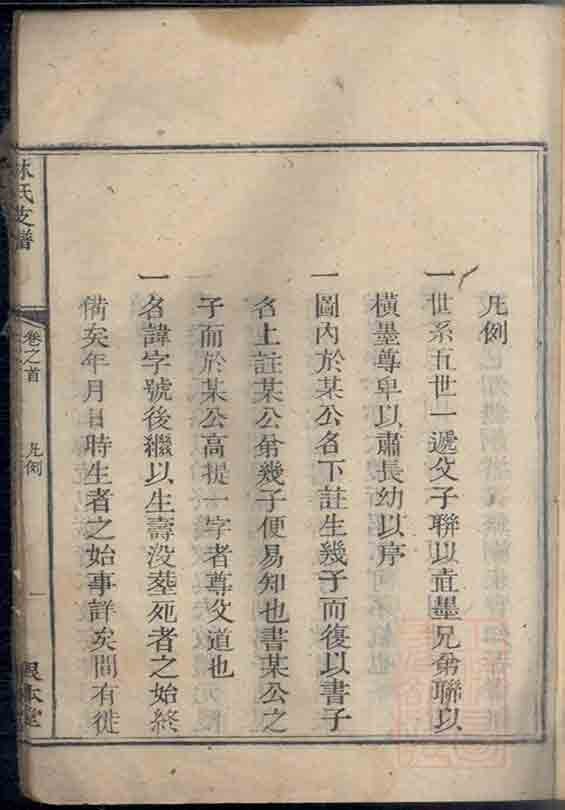 凡例
一世系五世一遞父子聯以直墨兄弟聯以
橫墨尊卑以肅長幼以序
一圖內於某公名下註生幾子而復以書子
名上註某公第幾子便易知也書某公之
子而於某公高提一字者尊父道也
一名諱字號後繼以生壽没塟死者之始終
備矣年月日時生者之始事詳矣間有徙
林氏支譜
卷之首
凡例
一